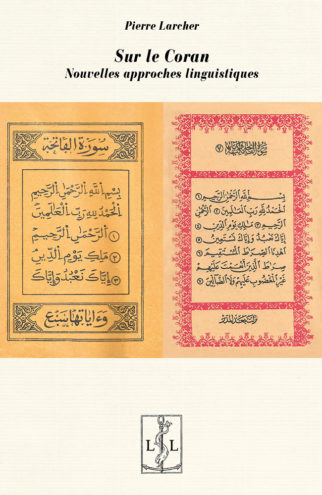 Pierre Larcher
Sur le Coran
Nouvelles approches linguistiques
سورة الفاتحة
بسم الله الرحمن الرحيم
الحمد لله رب العالمين
الرحمن الرحيم
ملك يوم الدين
إياك نعبد وإياك
وءاياتها سبع
بسم الله الرحمن الرحيم
الحمد لله رب العالمين الرحمن
الرحيم ملك يوم الدين
إياك نعبد وإياك نستعين
اهدنا الصراط المستقيم
صراط الذين أنعمت عليهم
غير المغضوب عليهم ولا الضالين
L L